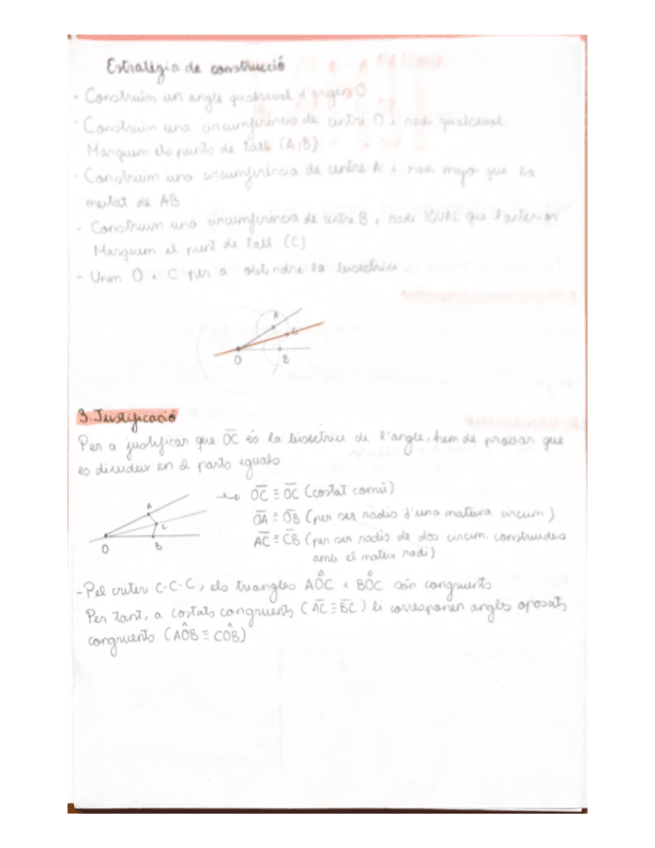 Estratègia de construcció
- Construim un angle qualsevol d'origen O
- Construim una circumferència de centre O i radi qualsevol.
Marquem els punts de tall (A, B)
- Construim una circumferència de centre A i radi major que la
meitat de AB
- Construim una circumferència de centre B i radi IGUAL que l'anterior
Marquem el punt de tall (C)
- Unim O i C per a obtindre la bisectriu
A
C
O
B
3. Justificació
Per a justificar que OC és la bisectriu de l'angle, hem de provar que
es divideix en 2 parts iguals
OC ≡ OC (costat comú)
OA ≡ OB (per ser radis d'una mateixa circum)
AC ≡ CB (per ser radis de dos circum. construides
amb el mateix radi)
A
C
O
B
- Pel criteri C-C-C, els triangles AÔC i BÔC són congruents
Per tant, a costats congruents (AC ≡ BC) li corresponen angles oposats
congruents (AÔB ≡ CÔB)